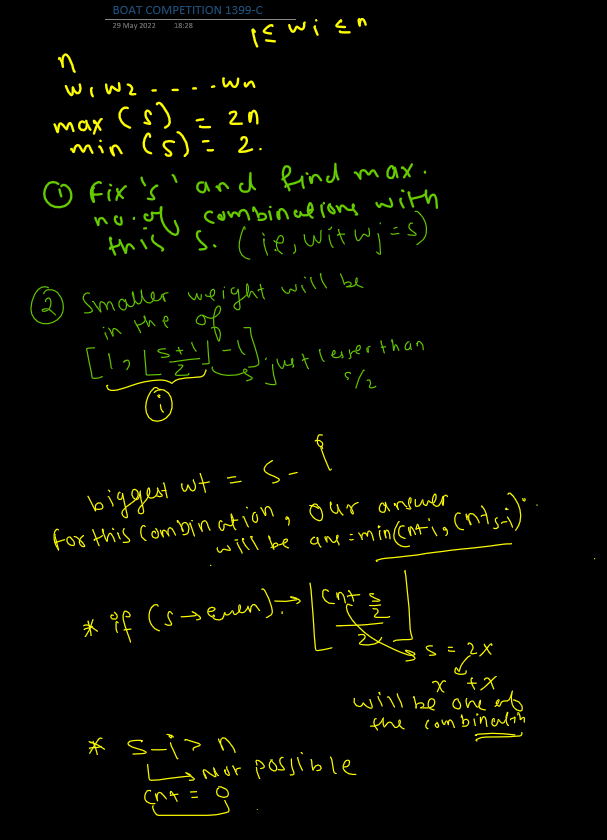 BOAT COMPETITION 1399-C
29 May 2022 18:28
1 ≤ wi ≤ n
n
w1 w2 - - - . . wn
max (s) = 2n
min (s) = 2.
① Fix 's' and find max.
no. of combinations with
this s. (ie, wi + wj = s)
② Smaller weight will be
in the of
[1, ⌊(s+1)/2⌋ - 1] → just lesser than s/2
i
biggest wt = s - i
for this combination, our answer
will be ans = min(cnti, cnts-i).
* if (s → even) → ⌊(cnt s/2)/2⌋
s = 2x
x + x
will be one of
the combination
* s - i > n
↳ Not possible
cnt = 0